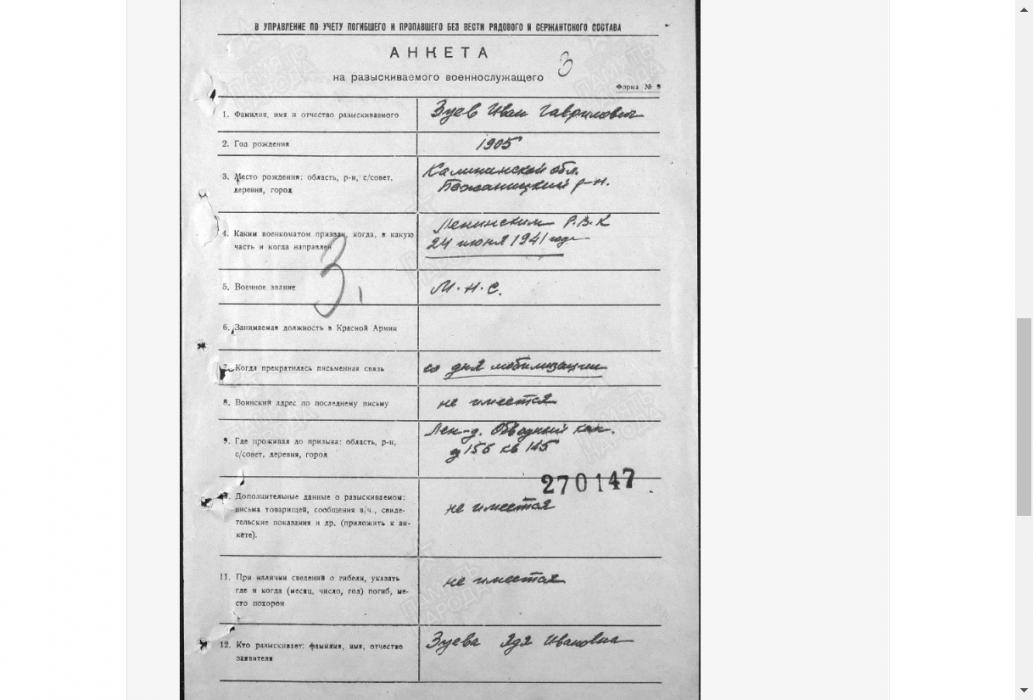 В УПРАВЛЕНИЕ ПО УЧЕТУ ПОГИБШЕГО И ПРОПАВШЕГО БЕЗ ВЕСТИ РЯДОВОГО И СЕРЖАНТСКОГО СОСТАВА
АНКЕТА
на разыскиваемого военнослужащего
3
Форма №
1. Фамилия, имя и отчество разыскиваемого
Зуев Иван Гаврилович
2. Год рождения
1905
3. Место рождения: область, р-н, с/совет,
деревня, город
Калининской обл.
р-н.
4. Каким военкоматом призван, когда, в какую
часть и когда направлен
Ленинским Р.В.К
24 июня 1941 года
3.
5. Военное звание
М.Н.С.
6. Занимаемая должность в Красной Армии
7. Когда прекратилась письменная связь
со дня мобилизации
8. Воинский адрес по последнему письму
не имеется
9. Где проживал до призыва: область, р-н,
с/совет, деревня, город
Лен-д. Обводный кан.
д 155 кв 145
270147
Дополнительные данные о разыскиваемом:
письма товарищей, сообщения в/ч., свиде-
тельские показания и др. (приложить к ан-
кете).
не имеется
11. При наличии сведений о гибели, указать
где и когда (месяц, число, год) погиб, ме-
сто похорон
не имеется
12. Кто разыскивает: фамилия, имя, отчество
заявителя
Зуева Ида Ивановна
ПАМЯТЬ
НАРОДА